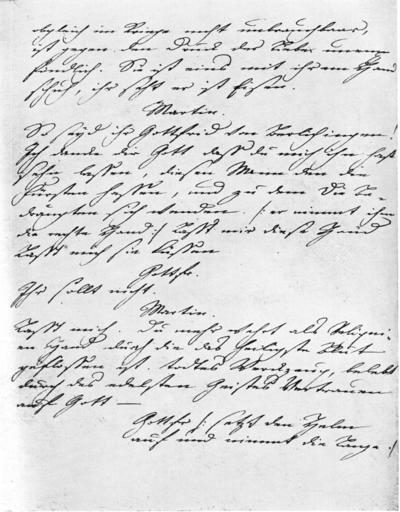 obgleich im Kriege nicht unbrauchbaar,
ist gegen den Druck der Liebe unem-
pfindlich. Sie ist eins mit ihrem Hand
schuh, ihr seht er ist Eisen.
Martin.
So seyd ihr Gottfried von Berlichingen!
Ich dancke dir Gott dass du mich ihn hast
sehn lassen, diesen Mann den die
Fürsten hassen, und zu dem die Be-
drängten sich wenden. /: er nimmt ihm
die rechte Hand :/ Lasst mir diese Hand
Lasst mich sie küssen
Gottfr.
Ihr sollt nicht.
Martin.
Lasst mich. Du mehr wehrt als Reliqui-
en Hand durch die das heiligste Blut
geflossen ist. todtes Werckzeug, belebt
durch des edelsten Geistes Vertrauen
auf Gott —
Gottfr /: setzt den Helm
auf und nimmt die Lanze :/